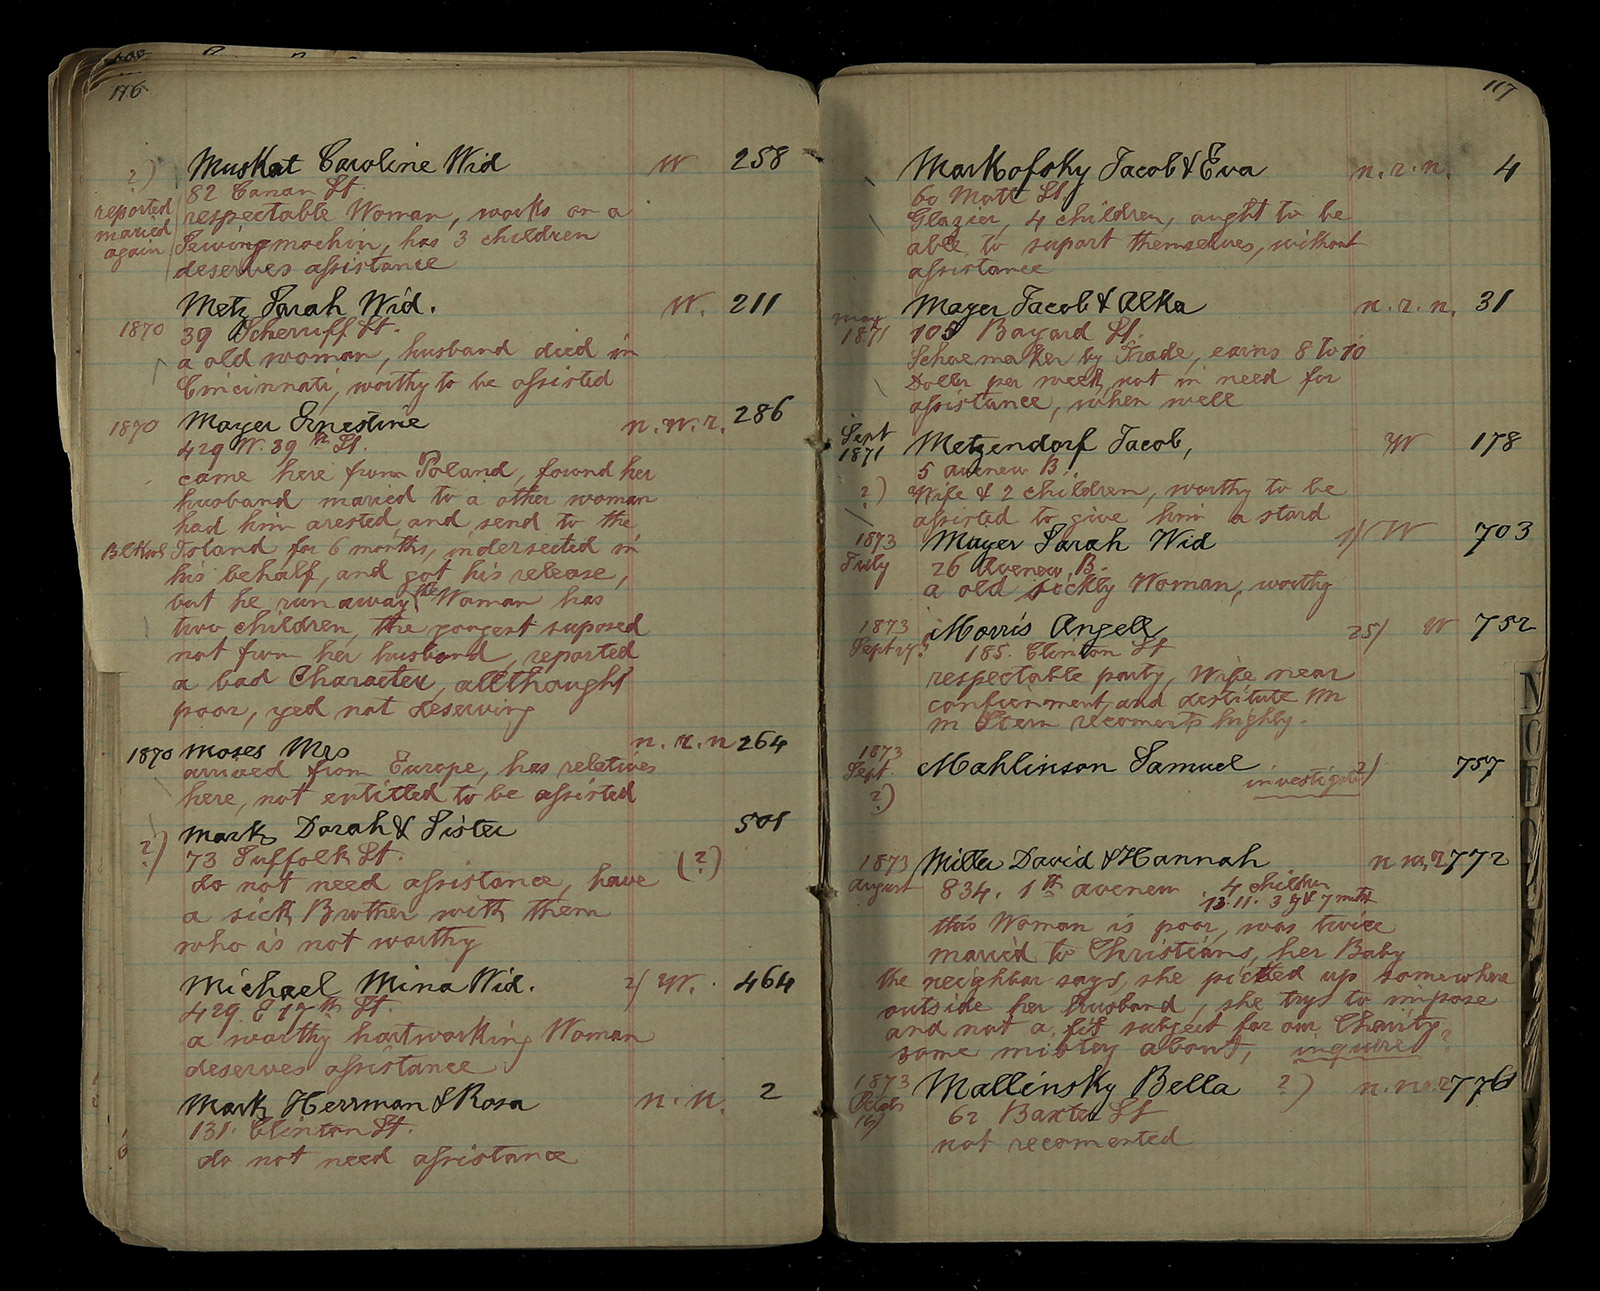 116
Muskat Caroline Wid W 258
?)
82 Canan St.
reported
maried
again
respectable Woman, works on a
Sewingmachin, has 3 children
deserves assistance
Metz Sarah Wid. W. 211
1870 39 Scherriff St.
a old woman, husband died in
Cincinnati, worthy to be assisted
1870 Mayer Ernestine n.w.r. 286
429 W. 39th St.
came here from Poland, found her
husband maried to a other woman
had him arested, and send to the
Island for 6 months, indersected in
his behalf, and got his release,
but he run away, the Woman has
two children, the yongest suposed
not from her husband, reported
a bad Character, allthought
poor, yed not deserving
1870 Moses Mrs n.r.n 264
arrived from Europe, has relatives
here, not entitled to be assisted
Mark Dorah & Sister 501
?) 73 Suffolk St. (?)
do not need assistance, have
a sick Brother with them
who is not worthy
Michael Mina Wid. 2/ W. 464
429 E 17th St.
a worthy hartworking Woman
deserves assistance
Mark Herrman & Rosa n.n. 2
131. Clinton St.
do not need assistance
117
Markofsky Jacob & Eva n.r.n. 4
60 Mott St.
Glazier, 4 children, aught to be
able to suport themselves, without
assistance
Mayer Jacob & Alka n.r.n. 31
may
1871 105 Bayard St.
Schoemaker by Trade, earns 8 to 10
Doller per week, not in need for
assistance, when well
Sept
1871 Metzendorf Jacob, W 178
5 avenew B.
?) Wife & 2 children, worthy to be
assisted to give him a stard
1873
July Mayer Sarah Wid 1/ W 703
26 Avenew B.
a old sickly Woman, worthy
1873
Sept Morris Angell 25/ W 752
185. Clinton St
respectable party, Wife near
confienment, and destitute Mr
M Stern recoments highly.
1873
Sept. Mahlinson Samuel 2/ 757
?) investigate
1873
August Miller David & Hannah 772
834. 1th avenew 4 children
13. 11. 3 y & 7 mths
this Woman is poor, was twice
maried to Christians, her Baby
the neighbar says, she picked up somewhere
outside her husband, she trys to impose
and not a fit subject for our Charity
some mistery about, inquire?
1873 Mallinsky Bella ?) 776
62 Baxter St
not recomented